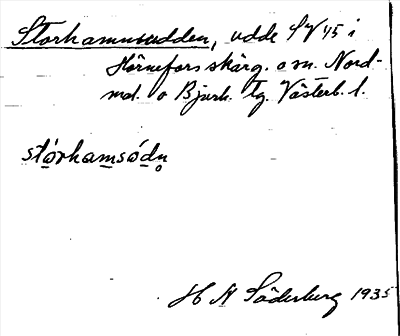 Storhamnudden, udde SV 45 i
Hörnefors skärg. o sn. Nord-
mal. o Bjurh. tg. Västerb. l.
stórhamsódn̥
H N Söderberg 1935